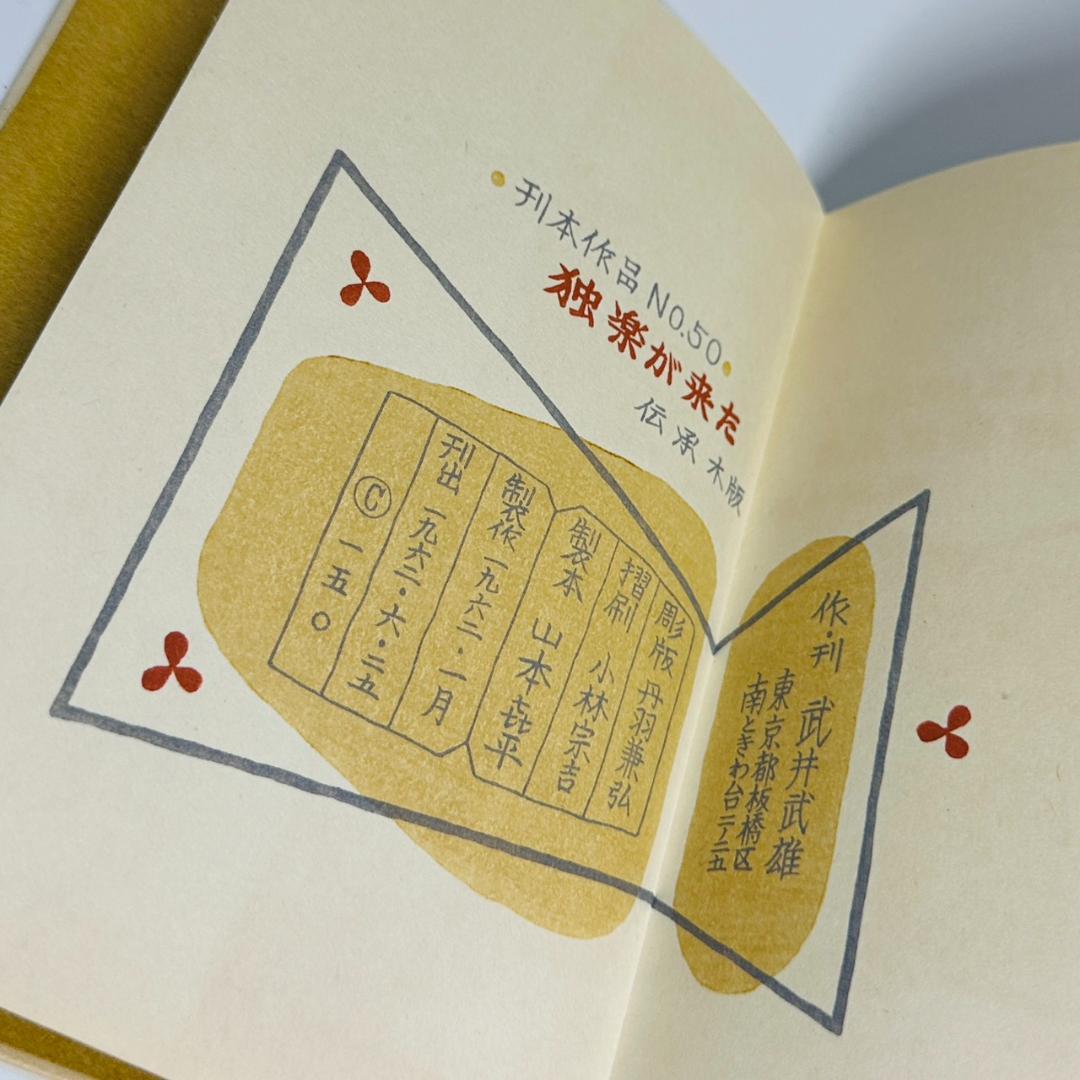 刊本作品NO.50
独楽が来た
伝承木版
作・刊 武井武雄
東京都板橋区
南ときわ台二ノ二五
彫版 丹羽兼弘
摺刷 小林宗吉
製本 山本
製作 一九六二・一月
刊出 一九六二・六・二五
Ⓒ 一五〇